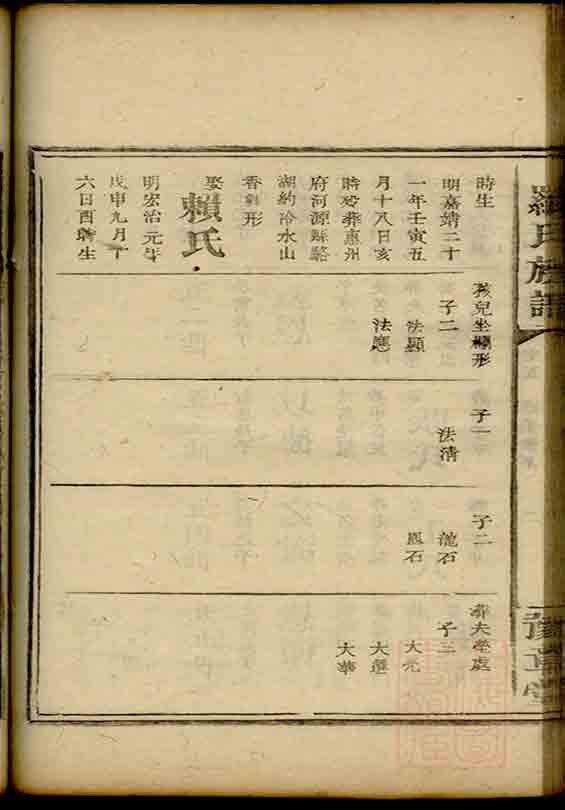 羅氏族譜
豫章堂
時生
明嘉靖二十
一年壬寅五
月十八日亥
時歿葬惠州
府河源縣駱
湖約冷水山
香爐形
娶賴氏
明宏治元年
戊申九月十
六日酉時生
孩兒坐欄形
子二
法顯
法應
子一
法清
子二
龍石
恩石
葬夫塋處
子三
大亮
大選
大華